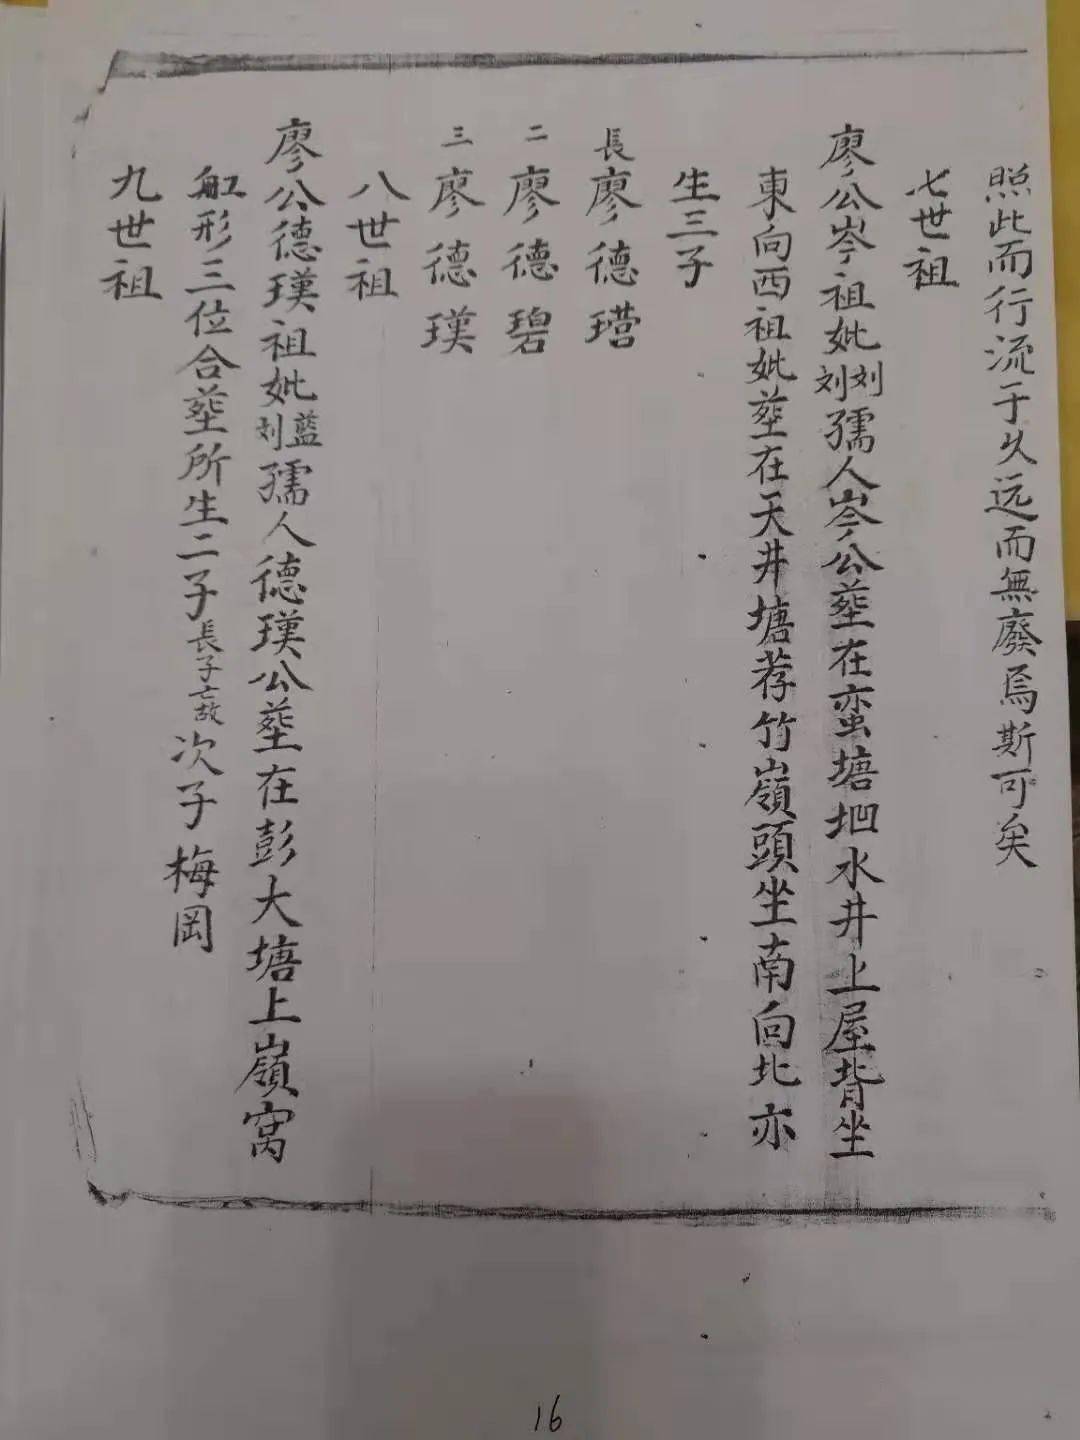 照此而行流于久远而無廢焉斯可矣
七世祖
廖公岑祖妣刘刘孺人岑公塟在蛮塘垇水井上屋背坐
東向西祖妣塟在天井塘荐竹嶺頭坐南向北亦
生三子
長廖德瑩
二廖德碧
三廖德瑛
八世祖
廖公德瑛祖妣藍刘孺人德瑛公塟在彭大塘上嶺窝
舡形三位合塟所生二子長子亡故次子梅岡
九世祖
16